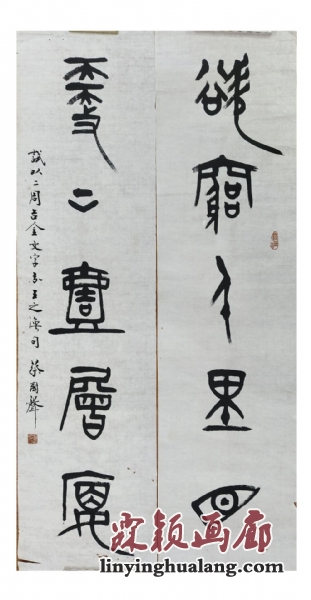 欲窮千里目
更上壹層樓
試以二周吉金文字书王之渙句 蔡國聲
霖颖画廊
linyinghualang.com